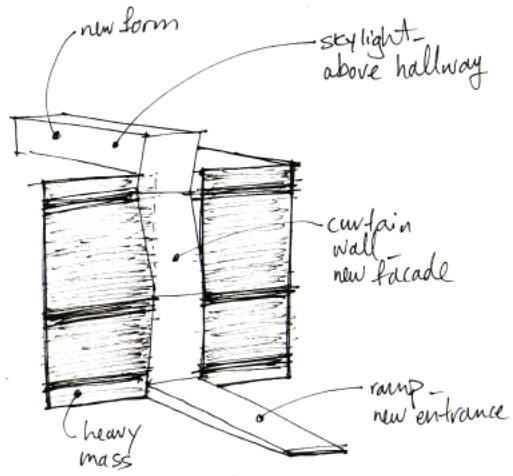 new form
skylight-
above hallway
curtain
wall-
new facade
ramp-
new entrance
heavy
mass